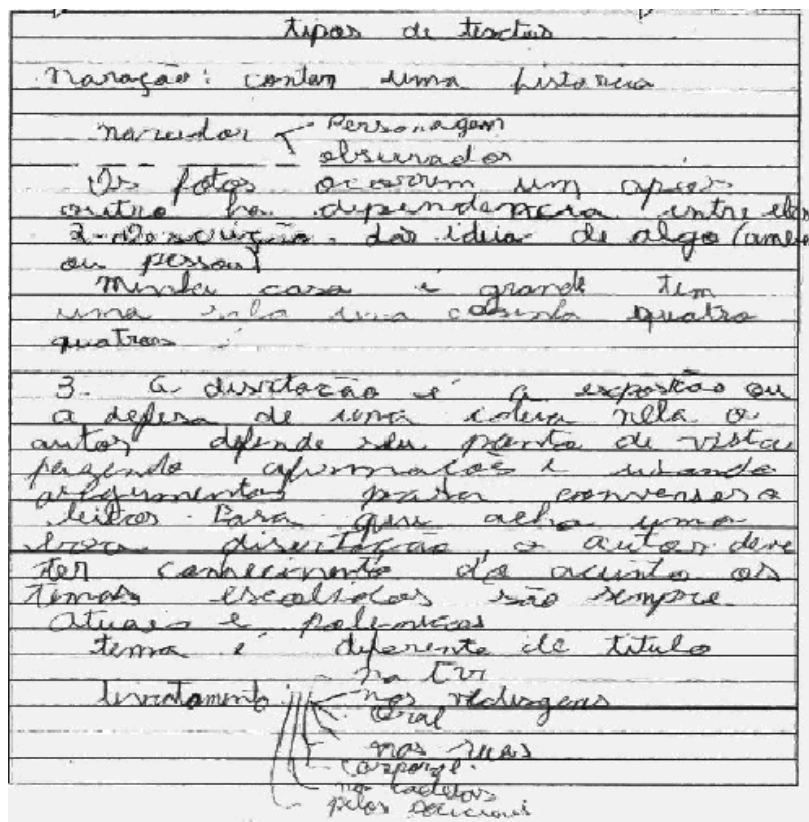 tipos de textos
naração: contar uma historia
narrador Personagem
observador
Os fatos ocorrem um apos
outro ha dependencia entre eles
2- Descrição. das ideia de algo (ambi
ou pessoa)
Minha casa é grande tem
uma sala uma cosinha quatro
quatros
3- A disertação é a exposição ou
a defesa de uma ideia nela o
autor defende seu ponto de vista
fazendo afirmações e usando
argumentos para convenser o
leitor. Para que acha uma
boa disertação, o autor deve
ter conhecimento do acunto os
temas escolhidos são sempre
atuais e polemicos
tema é diferente de titulo
na tv
nos
oral
nas ruas
corporal
pelos